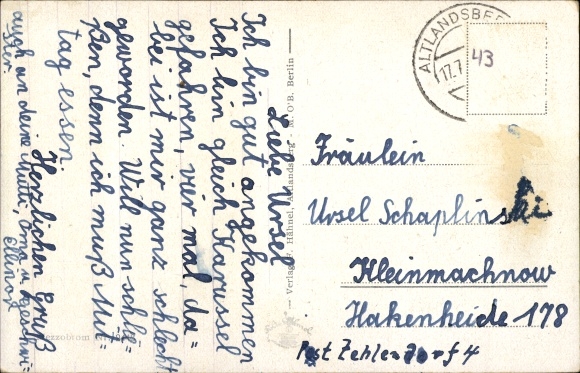 Liebe Ursel
Ich bin gut angekommen
Ich bin gleich Karussel
gefahren, vier mal, da=
bei ist mir ganz schlecht
geworden. Will nun schlie=
ßen, denn ich muß Mit=
tag essen.
Herzlichen Gruß
auch an deine Mutti, Oma u. Geschwi=
ster.
ALTLANDSBE
17.7
43
Verlag F. Hähnel, Altlandsberg
O'B. Berlin
Fräulein
Ursel Schaplinski
Kleinmachnow
Hakenheide 178
Post Zehlendorf 4